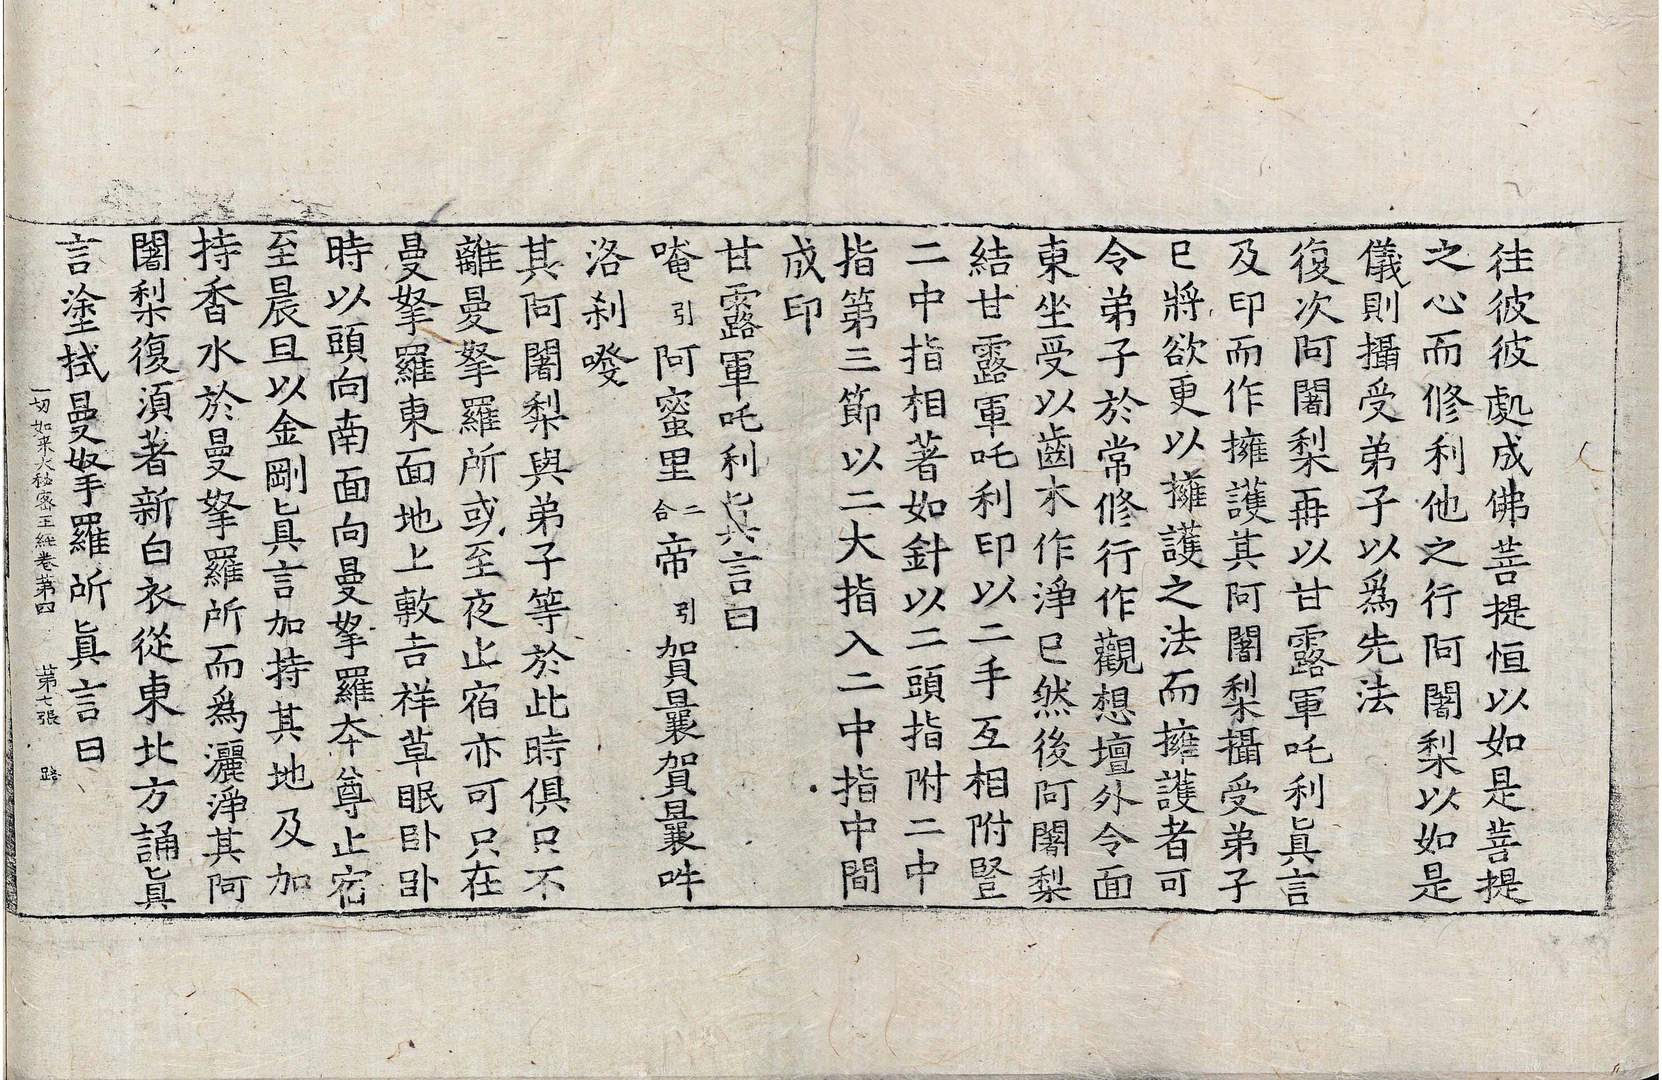 往彼彼處成佛菩提恒以如是菩提
之心而修利他之行阿闍梨以如是
儀則攝受弟子以爲先法
復次阿闍梨再以甘露軍吒利眞言
及印而作擁護其阿闍梨攝受弟子
已將欲更以擁護之法而擁護者可
令弟子於常修行作觀想壇外令面
東坐受以齒木作淨已然後阿闍梨
結甘露軍吒利印以二手互相附豎
二中指相著如針以二頭指附二中
指第三節以二大指入二中指中間
成印
甘露軍吒利眞言曰
唵引阿蜜里二合帝引賀曩賀曩吽
洛刹㗶
其阿闍梨與弟子等於此時俱只不
離曼拏羅所或至夜止宿亦可只在
曼拏羅東面地上敷吉祥草眠卧卧
時以頭向南面向曼拏羅本尊止宿
至晨旦以金剛眞言加持其地及加
持香水於曼拏羅所而爲灑淨其阿
闍梨復須著新白衣從東北方誦眞
言塗拭曼拏羅所眞言曰
一切如来大秘密王經卷第四 第七張 路